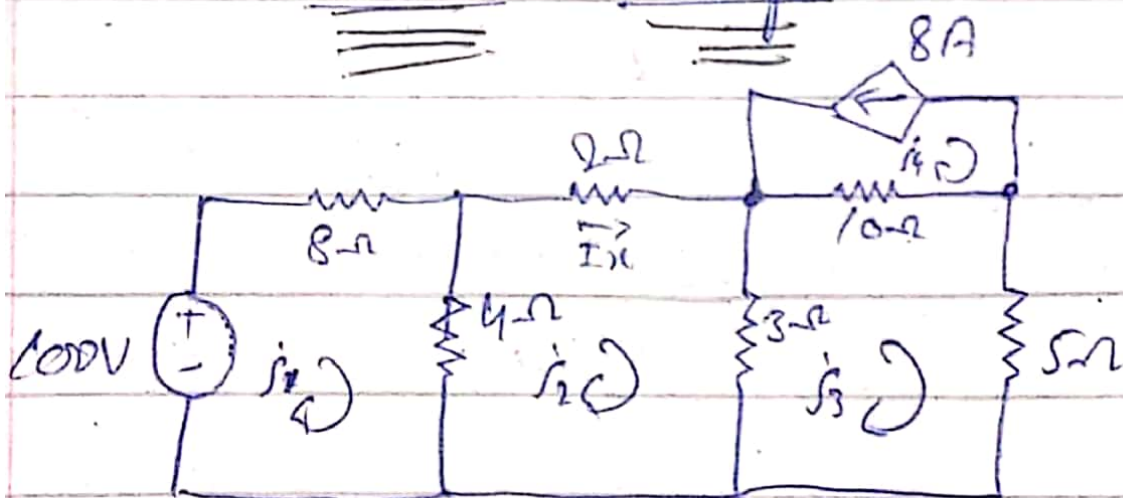 8A
i4
2Ω
8Ω
Ix
10Ω
100V
+
-
i1
4Ω
i2
3Ω
i3
5Ω